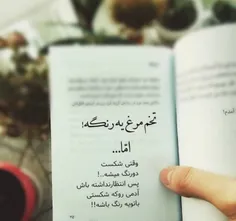 تخم مرغ یه رنگه!
امّا...
وقتی شکست
دورنگ میشه..!
پس انتظارنداشته باش
آدمی روکه شکستی
باتویه رنگ باشه!!